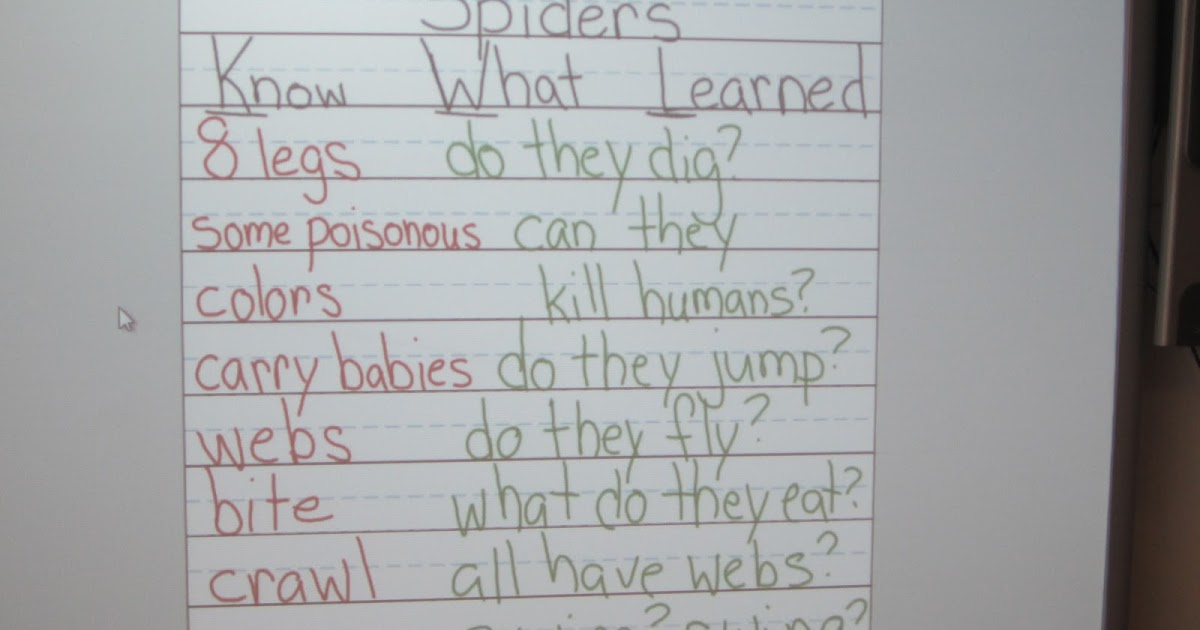 Spiders
Know What Learned
8 legs do they dig?
some poisonous can they
colors kill humans?
carry babies do they jump?
webs do they fly?
bite what do they eat?
crawl all have webs?